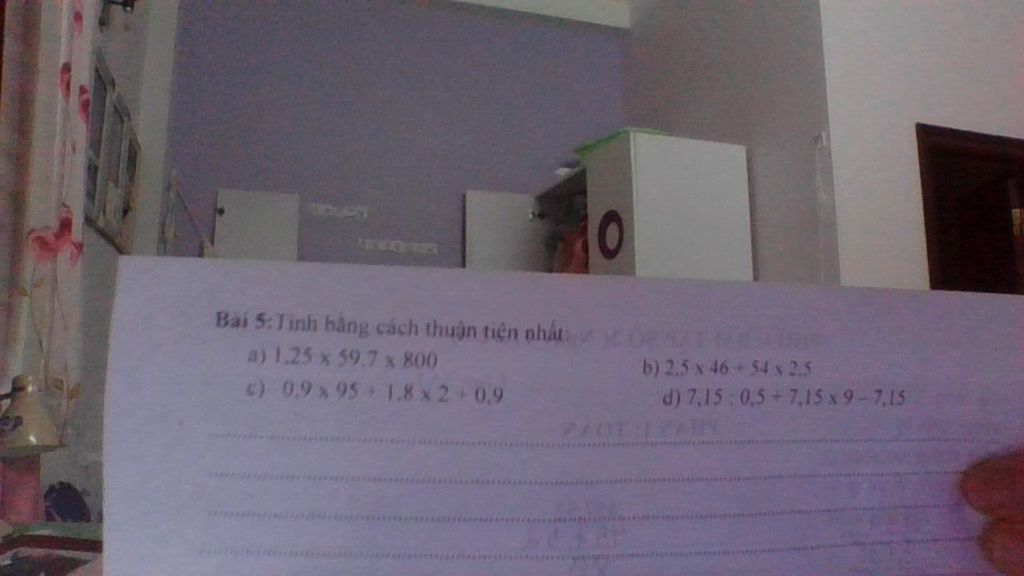 Bài 5: Tính bằng cách thuận tiện nhất
a) 1,25 x 59.7 x 800
b) 2,5 x 46 + 54 x 2,5
c) 0,9 x 95 + 1,8 x 2 + 0,9
d) 7,15 : 0,5 + 7,15 x 9 – 7,15